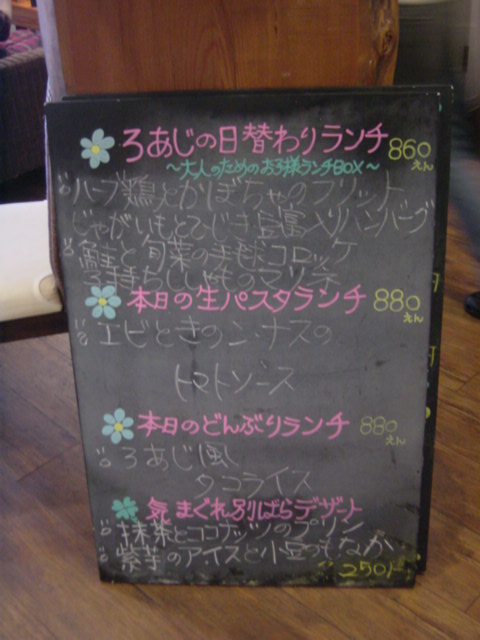 ろあじの日替わりランチ 860えん
～大人のためのお子様ランチBOX～
ハーブ鶏とかぼちゃのフリット
じゃがいもとひじき 入りハンバーグ
鮭と旬菜の手毬コロッケ
本日の生パスタランチ 880えん
エビときのこ・ナスの
トマトソース
本日のどんぶりランチ 880えん
ろあじ風
タコライス
気まぐれ別ばらデザート
抹茶とココナッツのプリン
紫芋のアイスと小豆のもなか
250円